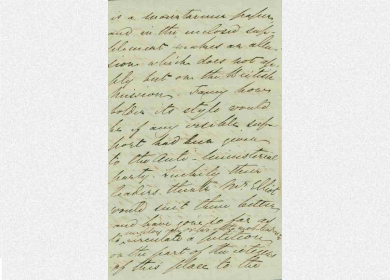 is a mountainous paper
and in the inclosed sup-
plement makes an allu-
sion which does not ap-
ply but on the British
Mission. Fancy how
bolder its style would
be if any visible sup-
port had been given
to the Anti-Ministerial
party. luckily their
leaders think Mr. Elliot
would suit them better
and have gone so far as
to circulate a petition
on the part of the
of this place to the